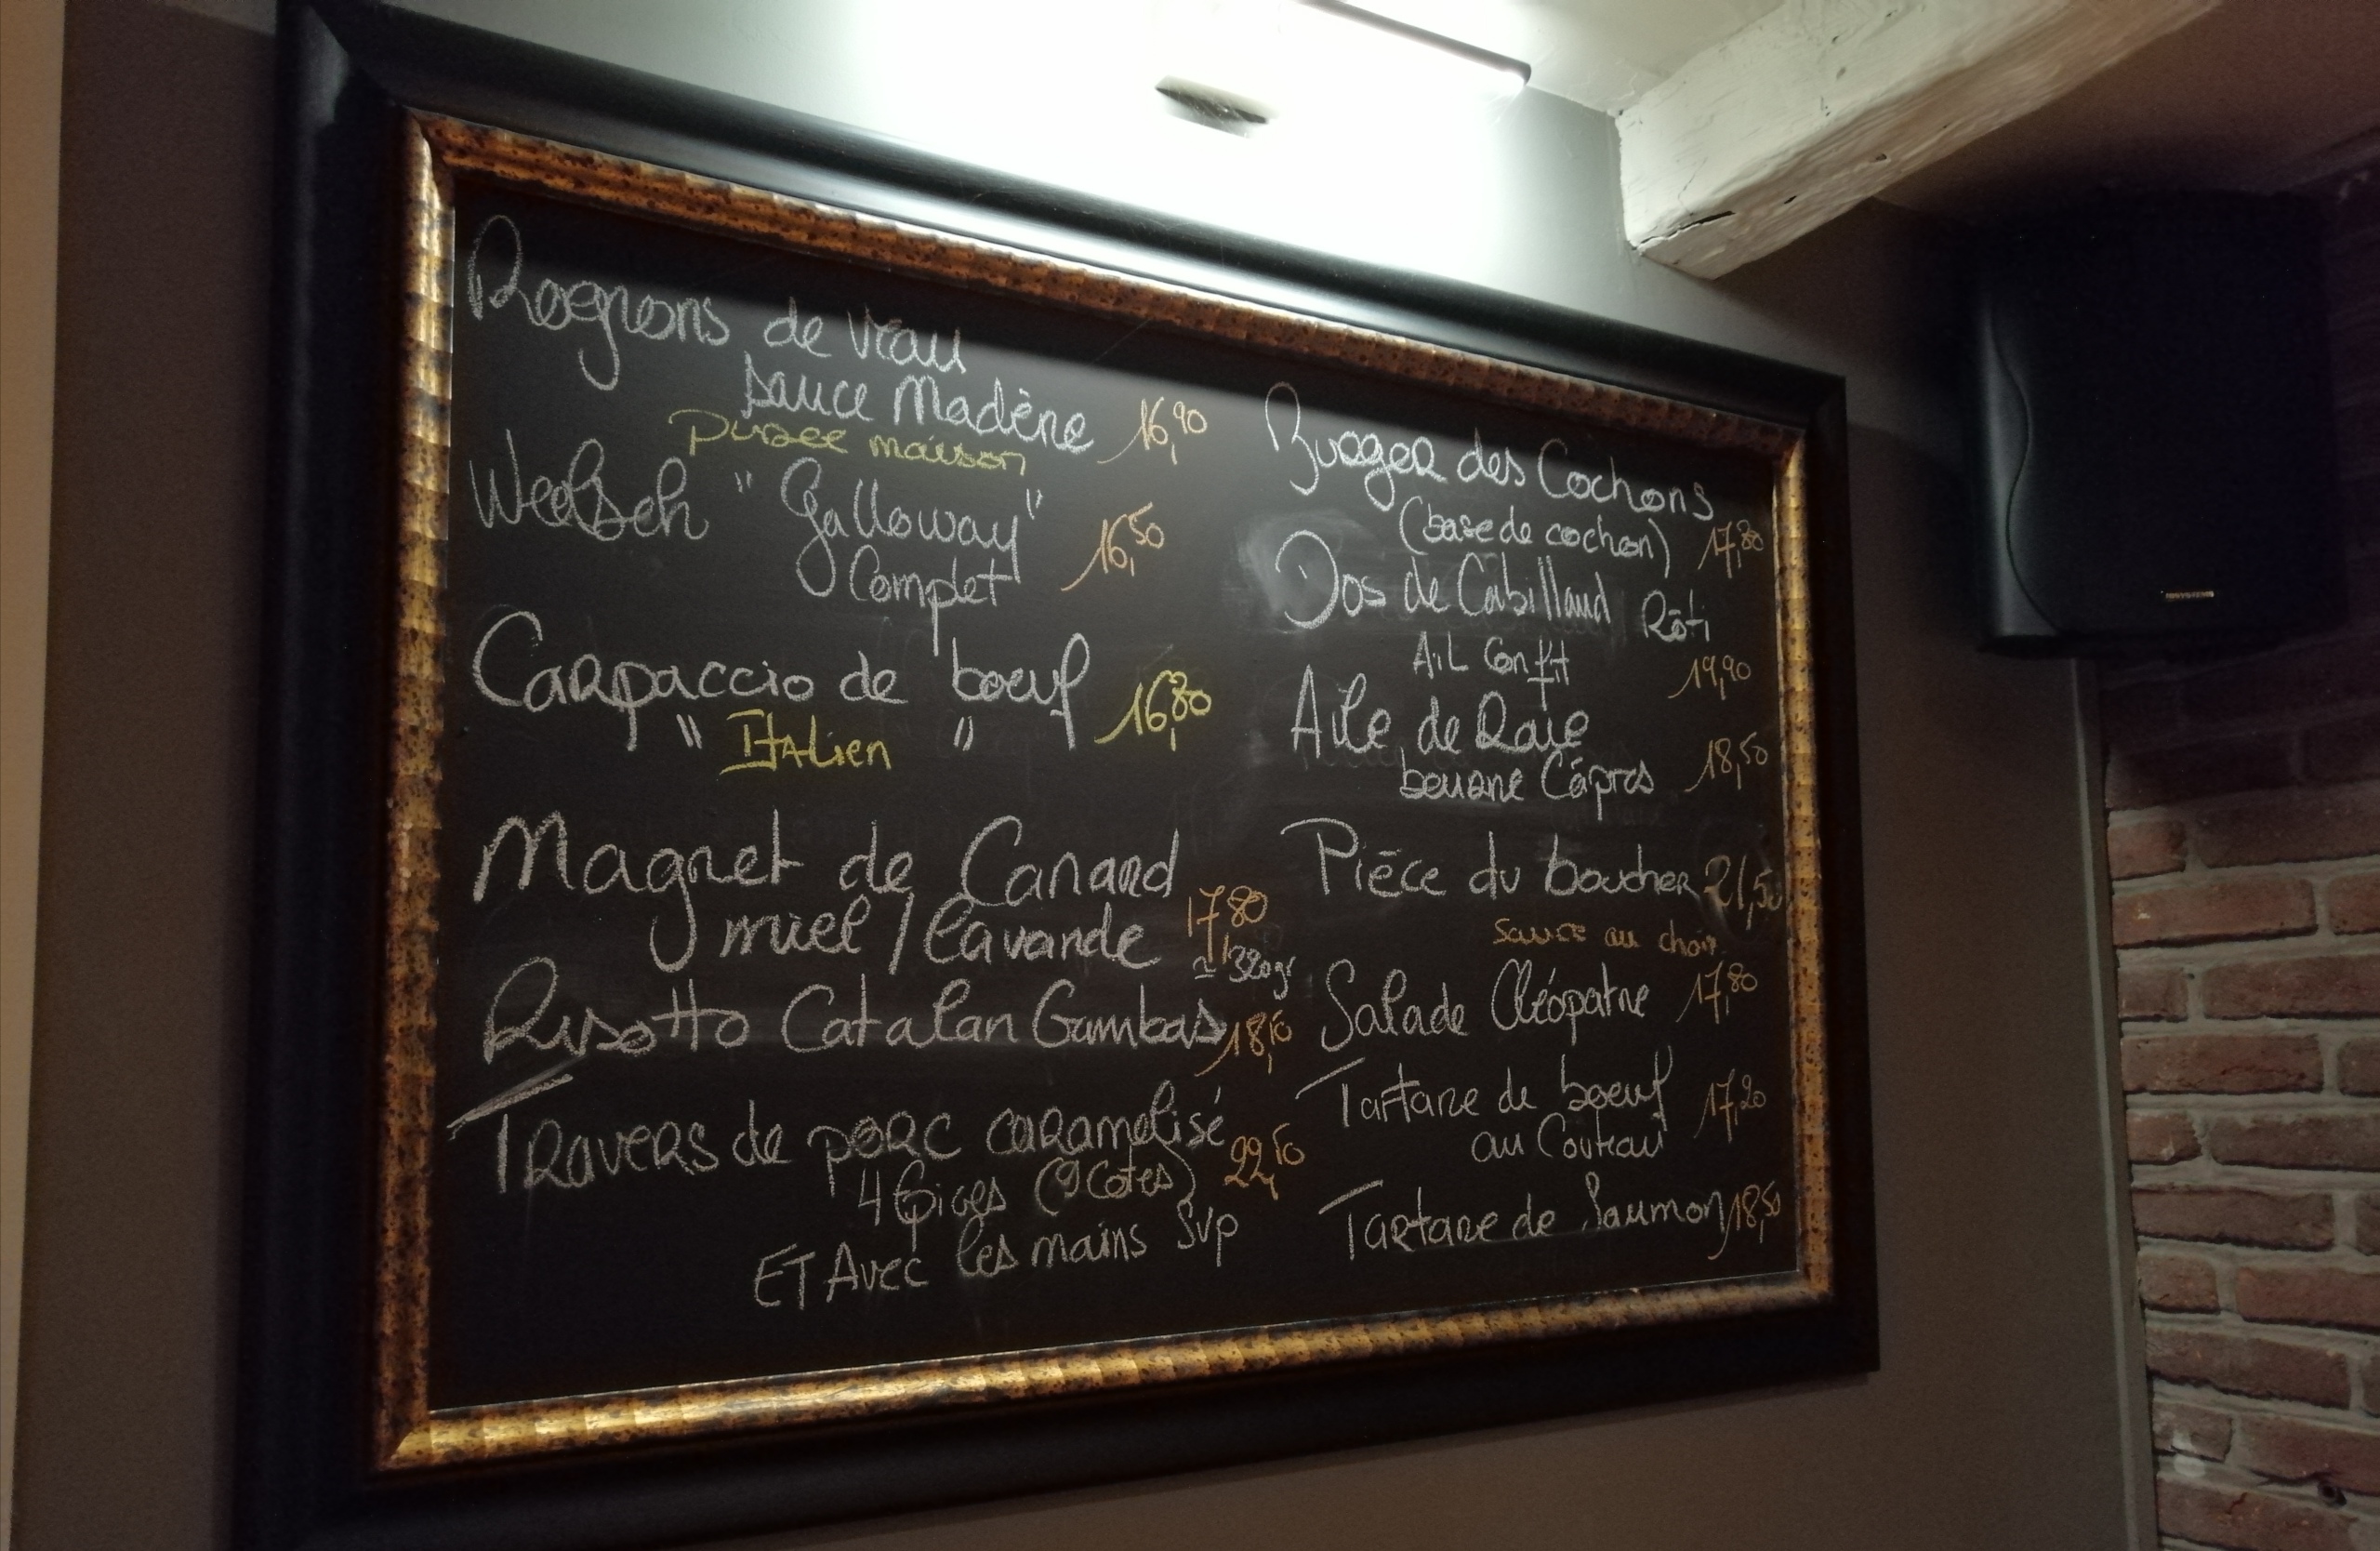 Rognons de veau
sauce Madère 16,90
purée maison
Welsch "Galloway"
Complet 16,50
Carpaccio de boeuf 16,80
"Italien"
Magret de Canard
miel / lavande 17,80
≃ 320gr
Risotto Catalan Gambas 18,10
Travers de porc caramelisé
(9 Cotes) 22,10
ET Avec les mains SVP
Burger des Cochons
(base de cochon) 17,80
Dos de Cabillaud Rôti
AiL Confit 19,90
Aile de Raie
beurre Câpres 18,50
Pièce du boucher 21,50
sauce au choix
Salade Cléopatre 17,80
Tartare de boeuf 17,20
au Couteau
Tartare de Saumon 18,50